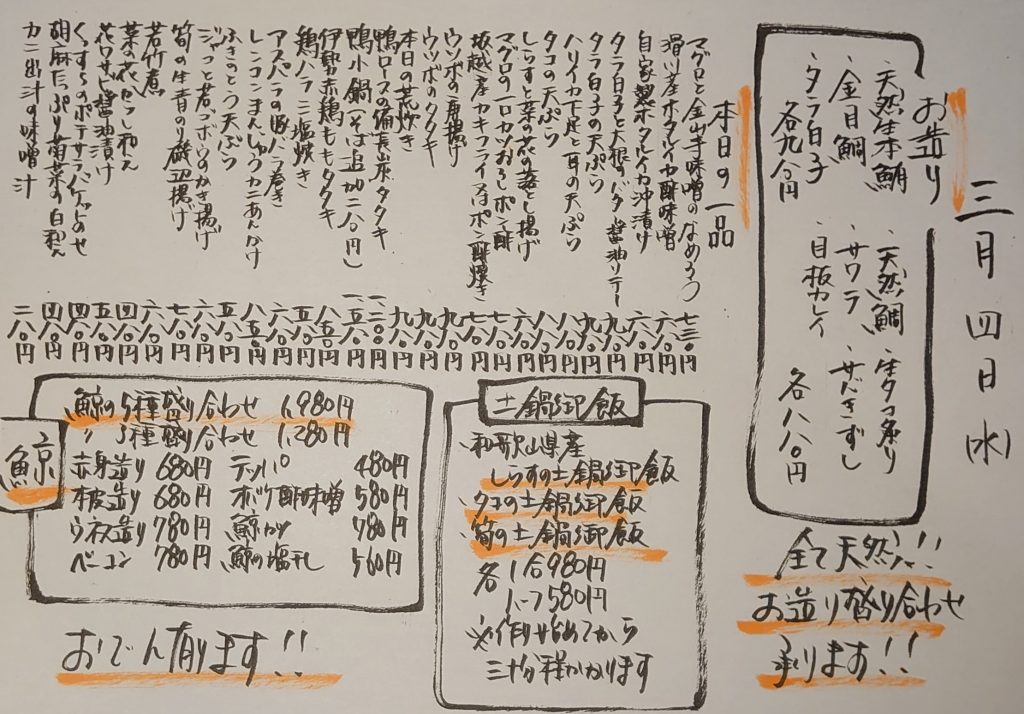 三月四日(水)
お造り
・天然生本鮪
・金目鯛
・タラ白子
各九八〇円
・天然鯛
・サワラ
・目板カレイ
・生タコ造り
・サバきずし
各八八〇円
全て天然!!
お造り盛り合わせ
承ります!!
本日の一品
マグロと金山寺味噌のなめろう 七三〇円
滑川産ホタルイカ酢味噌 六八〇円
自家製ホタルイカ沖漬け 六八〇円
タラ白子と大根のバター醤油ソテー 九八〇円
タラ白子の天ぷら 九八〇円
ハリイカ下足と耳の天ぷら 八八〇円
タコの天ぷら 八八〇円
しらすと菜の花の落とし揚げ 六八〇円
マグロの一口カツおろしポン酢 七八〇円
坂越産カキフライ又はポン酢焼き 七八〇円
ウツボの唐揚げ 九八〇円
ウツボのタタキ 九八〇円
本日の荒炊き 九八〇円
鴨ロースの備長炭タタキ
鴨小鍋(そば追加二八〇円)
伊勢赤鶏ももタタキ 八五〇円
鶏ハラミ塩焼き 六八〇円
アスパラの豚バラ巻き
レンコンまんじゅうカニあんかけ 八五〇円
ふきのとう天ぷら 五八〇円
ジャコと若ゴボウのかき揚げ 六八〇円
筍の生青のり磯辺揚げ 七八〇円
若竹煮 六八〇円
菜の花からし和え 四八〇円
花ワサビ醤油漬け 五八〇円
くずし豆のポテサラバゲットのせ 四八〇円
胡麻たっぷり菊菜の白和え 四八〇円
カニ出汁の味噌汁 二八〇円
土鍋御飯
・和歌山県産
しらすの土鍋御飯
・タコの土鍋御飯
・筍の土鍋御飯
各 1合980円
ハーフ580円
※作り始めてから
三十分程かかります
鯨
鯨の5種盛り合わせ 1,980円
〃 3種盛り合わせ 1,280円
赤身造り 680円 テッパ 480円
本皮造り 680円 オバケ酢味噌 580円
ウネ造り 780円 鯨カツ 780円
ベーコン 780円 鯨の塩干し 560円
おでん有ります!!